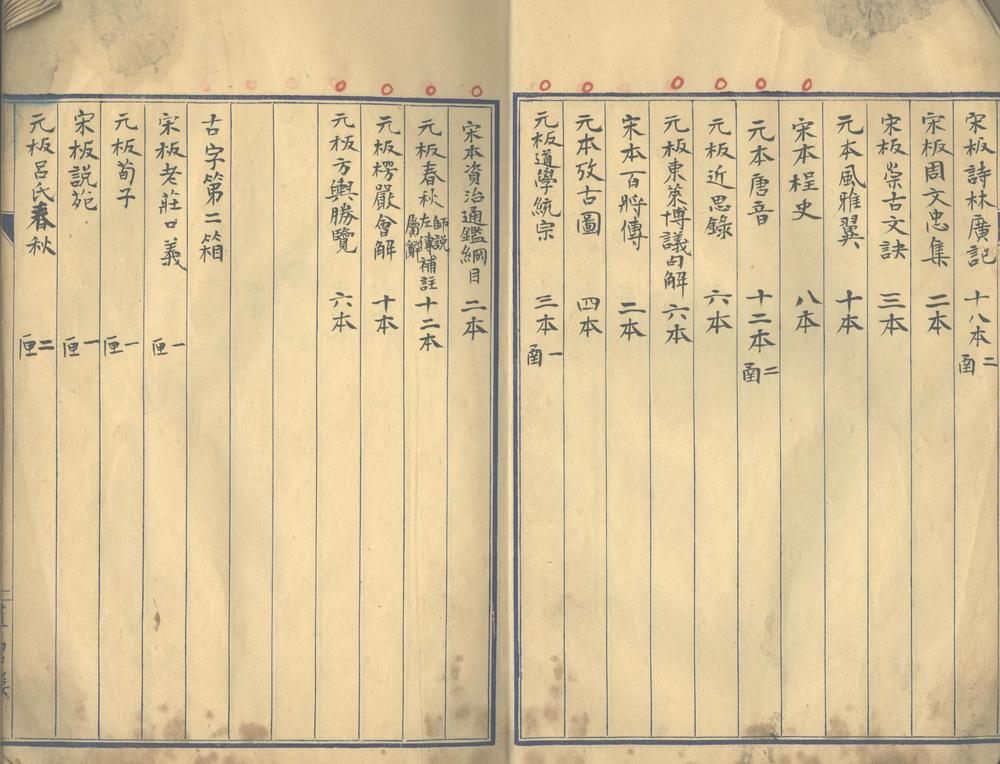 宋板詩林廣記 十八本 二函
宋板周文忠集 二本
宋板崇古文訣 三本
元本風雅翼 十本
宋本桯史 八本
元本唐音 十二本 二函
元板近思錄 六本
元板東萊博議句解 六本
宋本百將傳 二本
元本攷古圖 四本
元板道學統宗 三本 一函
宋本資治通鑑綱目 二本
元板春秋師說左傳補註屬辭 十二本
元板楞嚴會解 十本
元板方輿勝覽 六本
古字第二箱
宋板老莊口義 一匣
元板荀子 一匣
宋板説苑 一匣
元板呂氏春秋 二匣